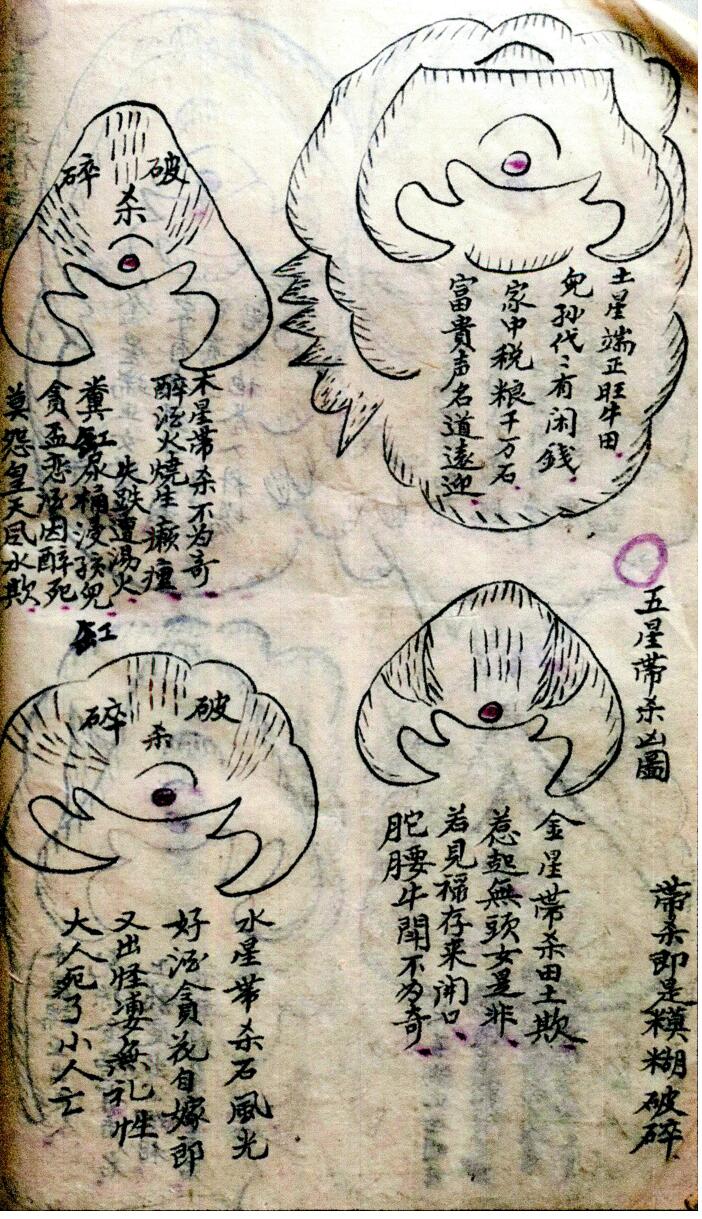 土星端正旺牛田
兒孙代〻有闲錢
家中税粮千万石
富貴声名道遠迎
五星帶杀凶圖
帶杀即是糢糊破碎
金星帶杀田土欺
惹起無頭女是非
若見禄存来開口
駝腰牛闻不为奇
破
碎
杀
木星帶杀不为奇
醉酒火燒生癞
失跌遭湯火
糞缸尿桶浸孩兒
貪盃恋酒因醉死
莫怨皇天风水欺
缸
破
碎
杀
水星帶杀石風光
好酒貪花自嫁郎
又出怪凄無礼性
大人死了小人亡